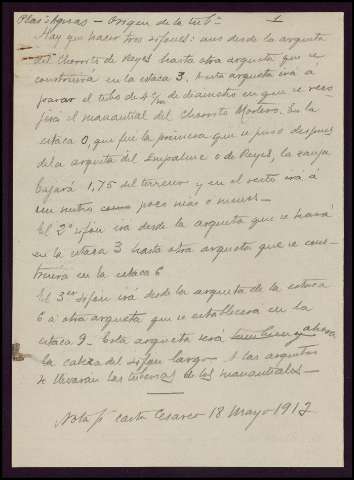 Plas: Aguas — Origen de la tub.ª 1
Hay que hacer tres sifones: uno desde la arqueta
del Chorrito de Reyes hasta otra arqueta que se
construirá en la estaca 3, hasta arqueta irá á
parar el tubo de 4 c/m de diámetro en que se reco
jerá el manantial del Chorrito Mortero. En la
estaca 0, que fue la primera que se puso después
de la arqueta del Empalme o de Reyes, la zanja
bajará 1,75 del terreno y en el resto irá á
un metro como poco más o menos —
El 2º sifón irá desde la arqueta que se hará
en la estaca 3 hasta otra arqueta que se cons-
truirá en la estaca 6
El 3er sifón irá desde la arqueta de la estaca
6 á otra arqueta que se establecerá en la
estaca 9 — Esta arqueta será ahora
la cabeza del sifón largo — A las arquetas
se llevarán las tuberías de los manantiales —
Nota pª carta Cesareo 18 Mayo 1912